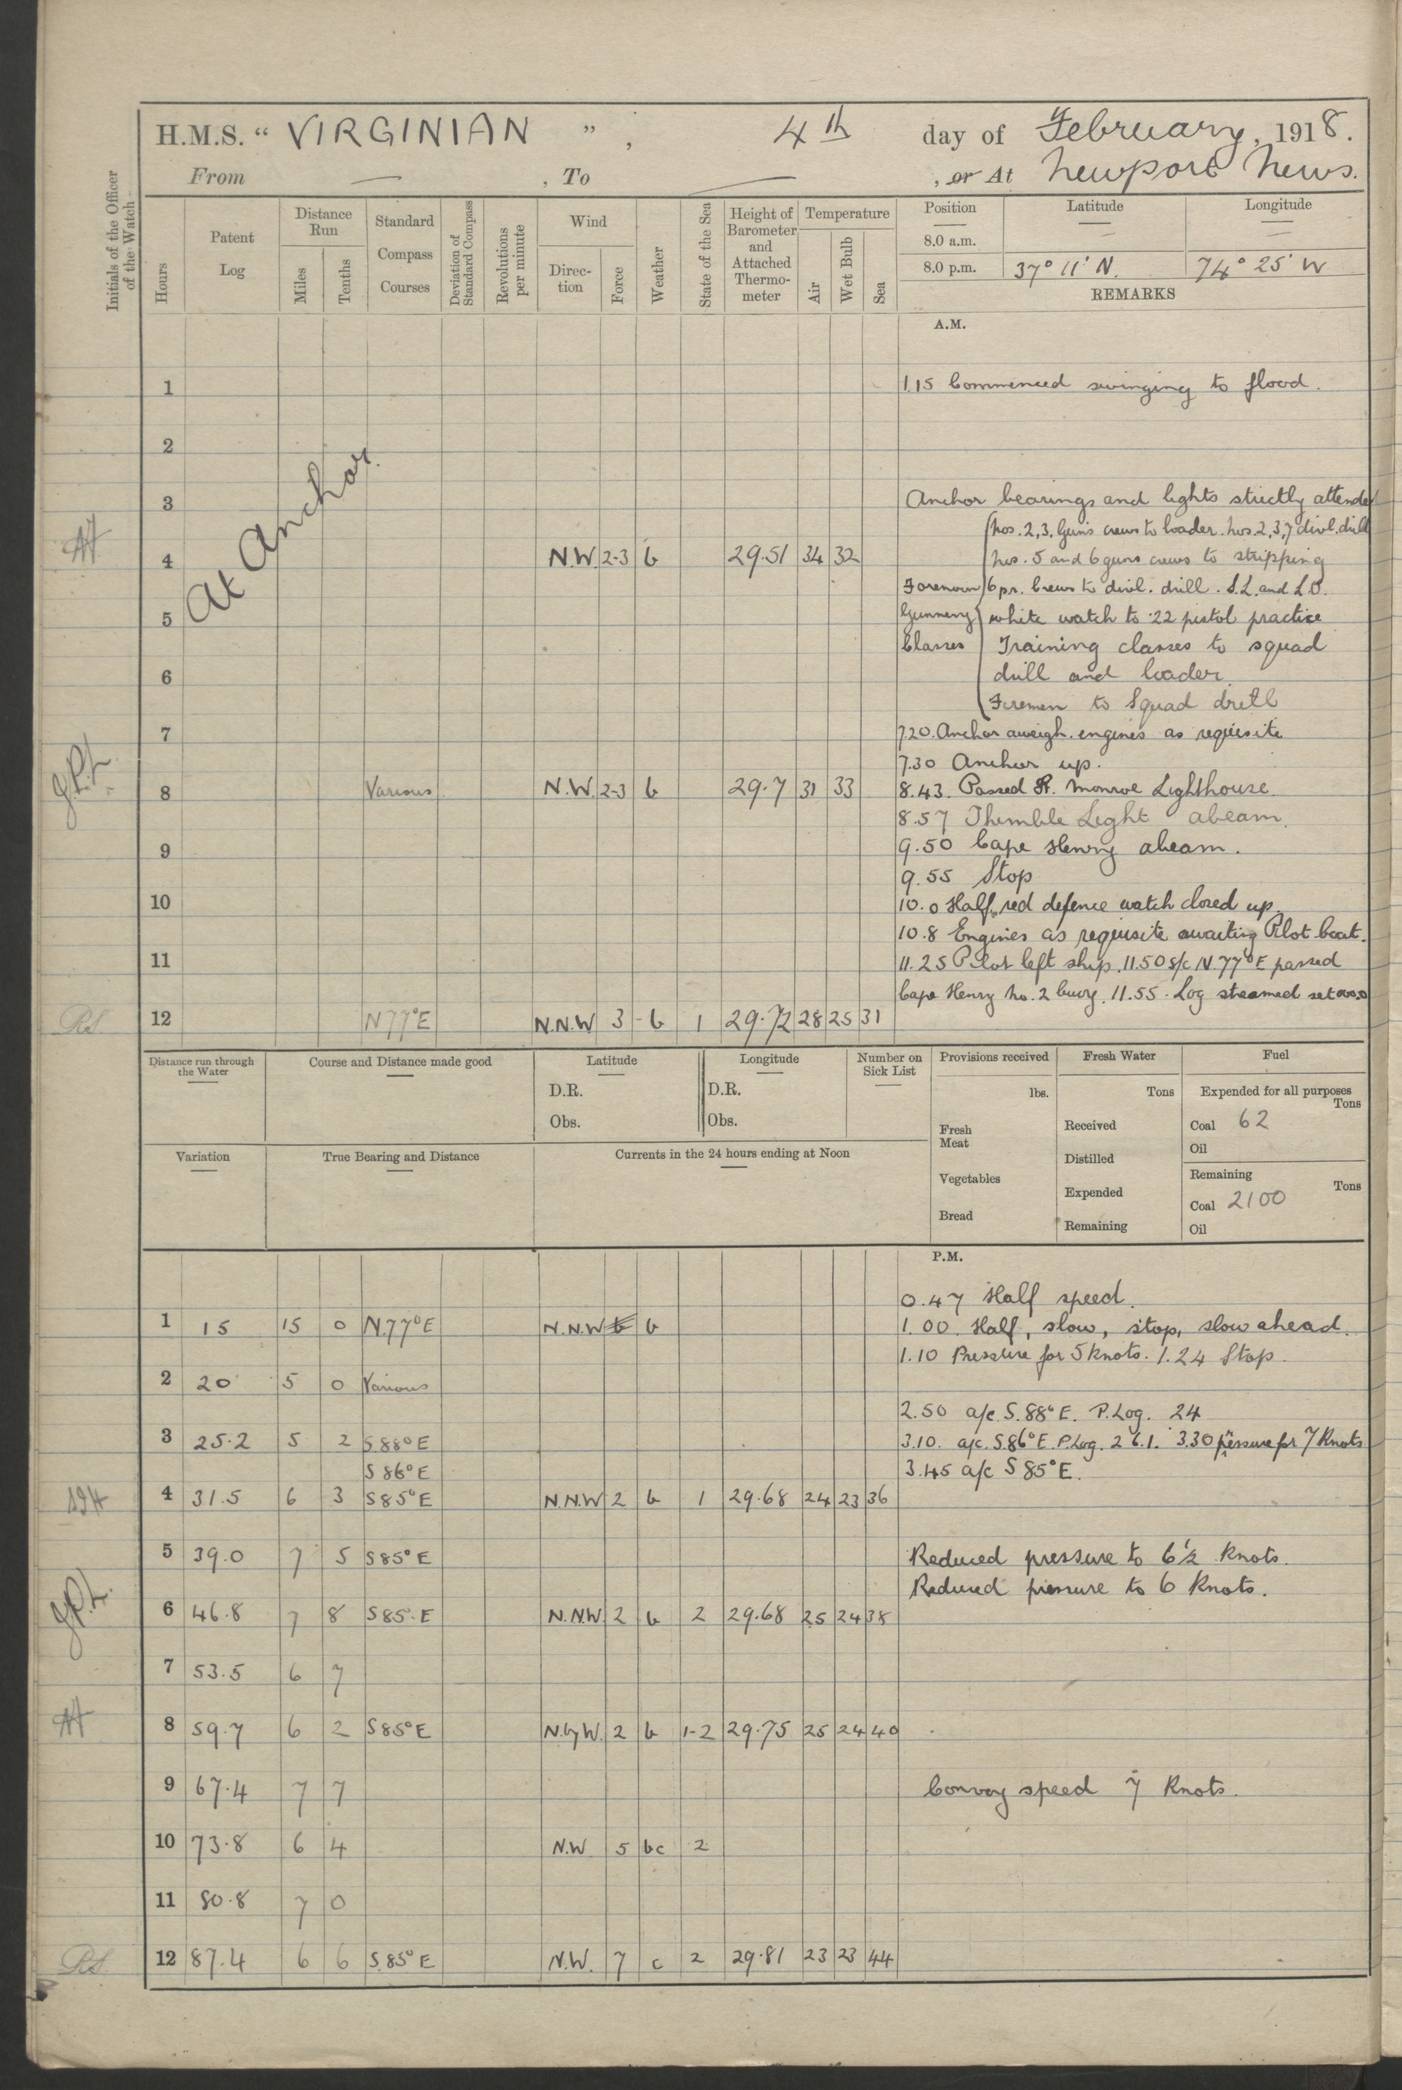 H.M.S. “ VIRGINIAN ” , 4th day of February, 1918.
From — , To — , or At Newport News.
Initials of the Officer of the Watch
Hours
Patent Log
Distance Run
Miles
Tenths
Standard Compass Courses
Deviation of Standard Compass
Revolutions per minute
Wind
Direc-tion
Force
Weather
State of the Sea
Height of Barometer and Attached Thermo-meter
Temperature
Air
Wet Bulb
Sea
Position Latitude Longitude
8.0 a.m. — —
8.0 p.m. 37° 11' N. 74° 25' W
REMARKS
A.M.
At Anchor.
1 1.15 Commenced swinging to flood.
2
3 Anchor bearings and lights strictly attended
Nos. 2, 3, Guns crews to loader. Nos. 2, 3, 7 divl. drill
4 N.W. 2-3 b 29.51 34 32 Nos. 5 and 6 guns crews to stripping
Forenoon 6 pr. Crews to divl. drill. S.L. and L.O.
5 Gunnery white watch to .22 pistol practice
Classes Training classes to squad
6 drill and loader.
Firemen to Squad drill
7 7.20. Anchor aweigh. engines as requisite
7.30 Anchor up.
J.P.L. 8 Various N.W. 2-3 b 29.7 31 33 8.43. Passed Ft. Monroe Lighthouse
8.57 Thimble Light abeam.
9 9.50 Cape Henry abeam.
9.55 Stop
10 10.0 Half red defence watch closed up
10.8 Engines as requisite awaiting Pilot boat.
11 11.25 Pilot left ship. 11.50 s/c N.77°E passed
Cape Henry No. 2 buoy. 11.55. Log streamed set 000.0
RS 12 N 77°E N.N.W 3 b 1 29.72 28 25 31
Distance run through the Water
Course and Distance made good
Latitude
D.R.
Obs.
Longitude
D.R.
Obs.
Number on Sick List
Provisions received
lbs.
Fresh Meat
Vegetables
Bread
Fresh Water
Tons
Received
Distilled
Expended
Remaining
Fuel
Expended for all purposes
Tons
Coal 62
Oil
Remaining
Tons
Coal 2100
Oil
Variation
True Bearing and Distance
Currents in the 24 hours ending at Noon
P.M.
0.47 Half speed.
1 15 15 0 N.77°E N.N.W b 1.00. Half, slow, stop, slow ahead.
1.10 Pressure for 5 knots. 1.24 Stop.
2 20 5 0 Various
2.50 a/c S.88°E. P.Log. 24
3 25.2 5 2 S88°E 3.10. a/c. S.86°E. P.Log. 26.1. 3.30 pressure for 7 Knots
S 86°E 3.45 a/c S 85°E.
4 31.5 6 3 S85°E N.N.W 2 b 1 29.68 24 23 36
5 39.0 7 5 S85°E Reduced pressure to 6½ Knots.
Reduced pressure to 6 Knots.
J.P.L. 6 46.8 7 8 S85°E N.N.W. 2 b 2 29.68 25 24 38
7 53.5 6 7
8 59.7 6 2 S85°E N.byW. 2 b 1-2 29.75 25 24 40
9 67.4 7 7 Convoy speed 7 Knots.
10 73.8 6 4 N.W. 5 bc 2
11 80.8 7 0
RS 12 87.4 6 6 S.85°E N.W. 7 c 2 29.81 23 23 44